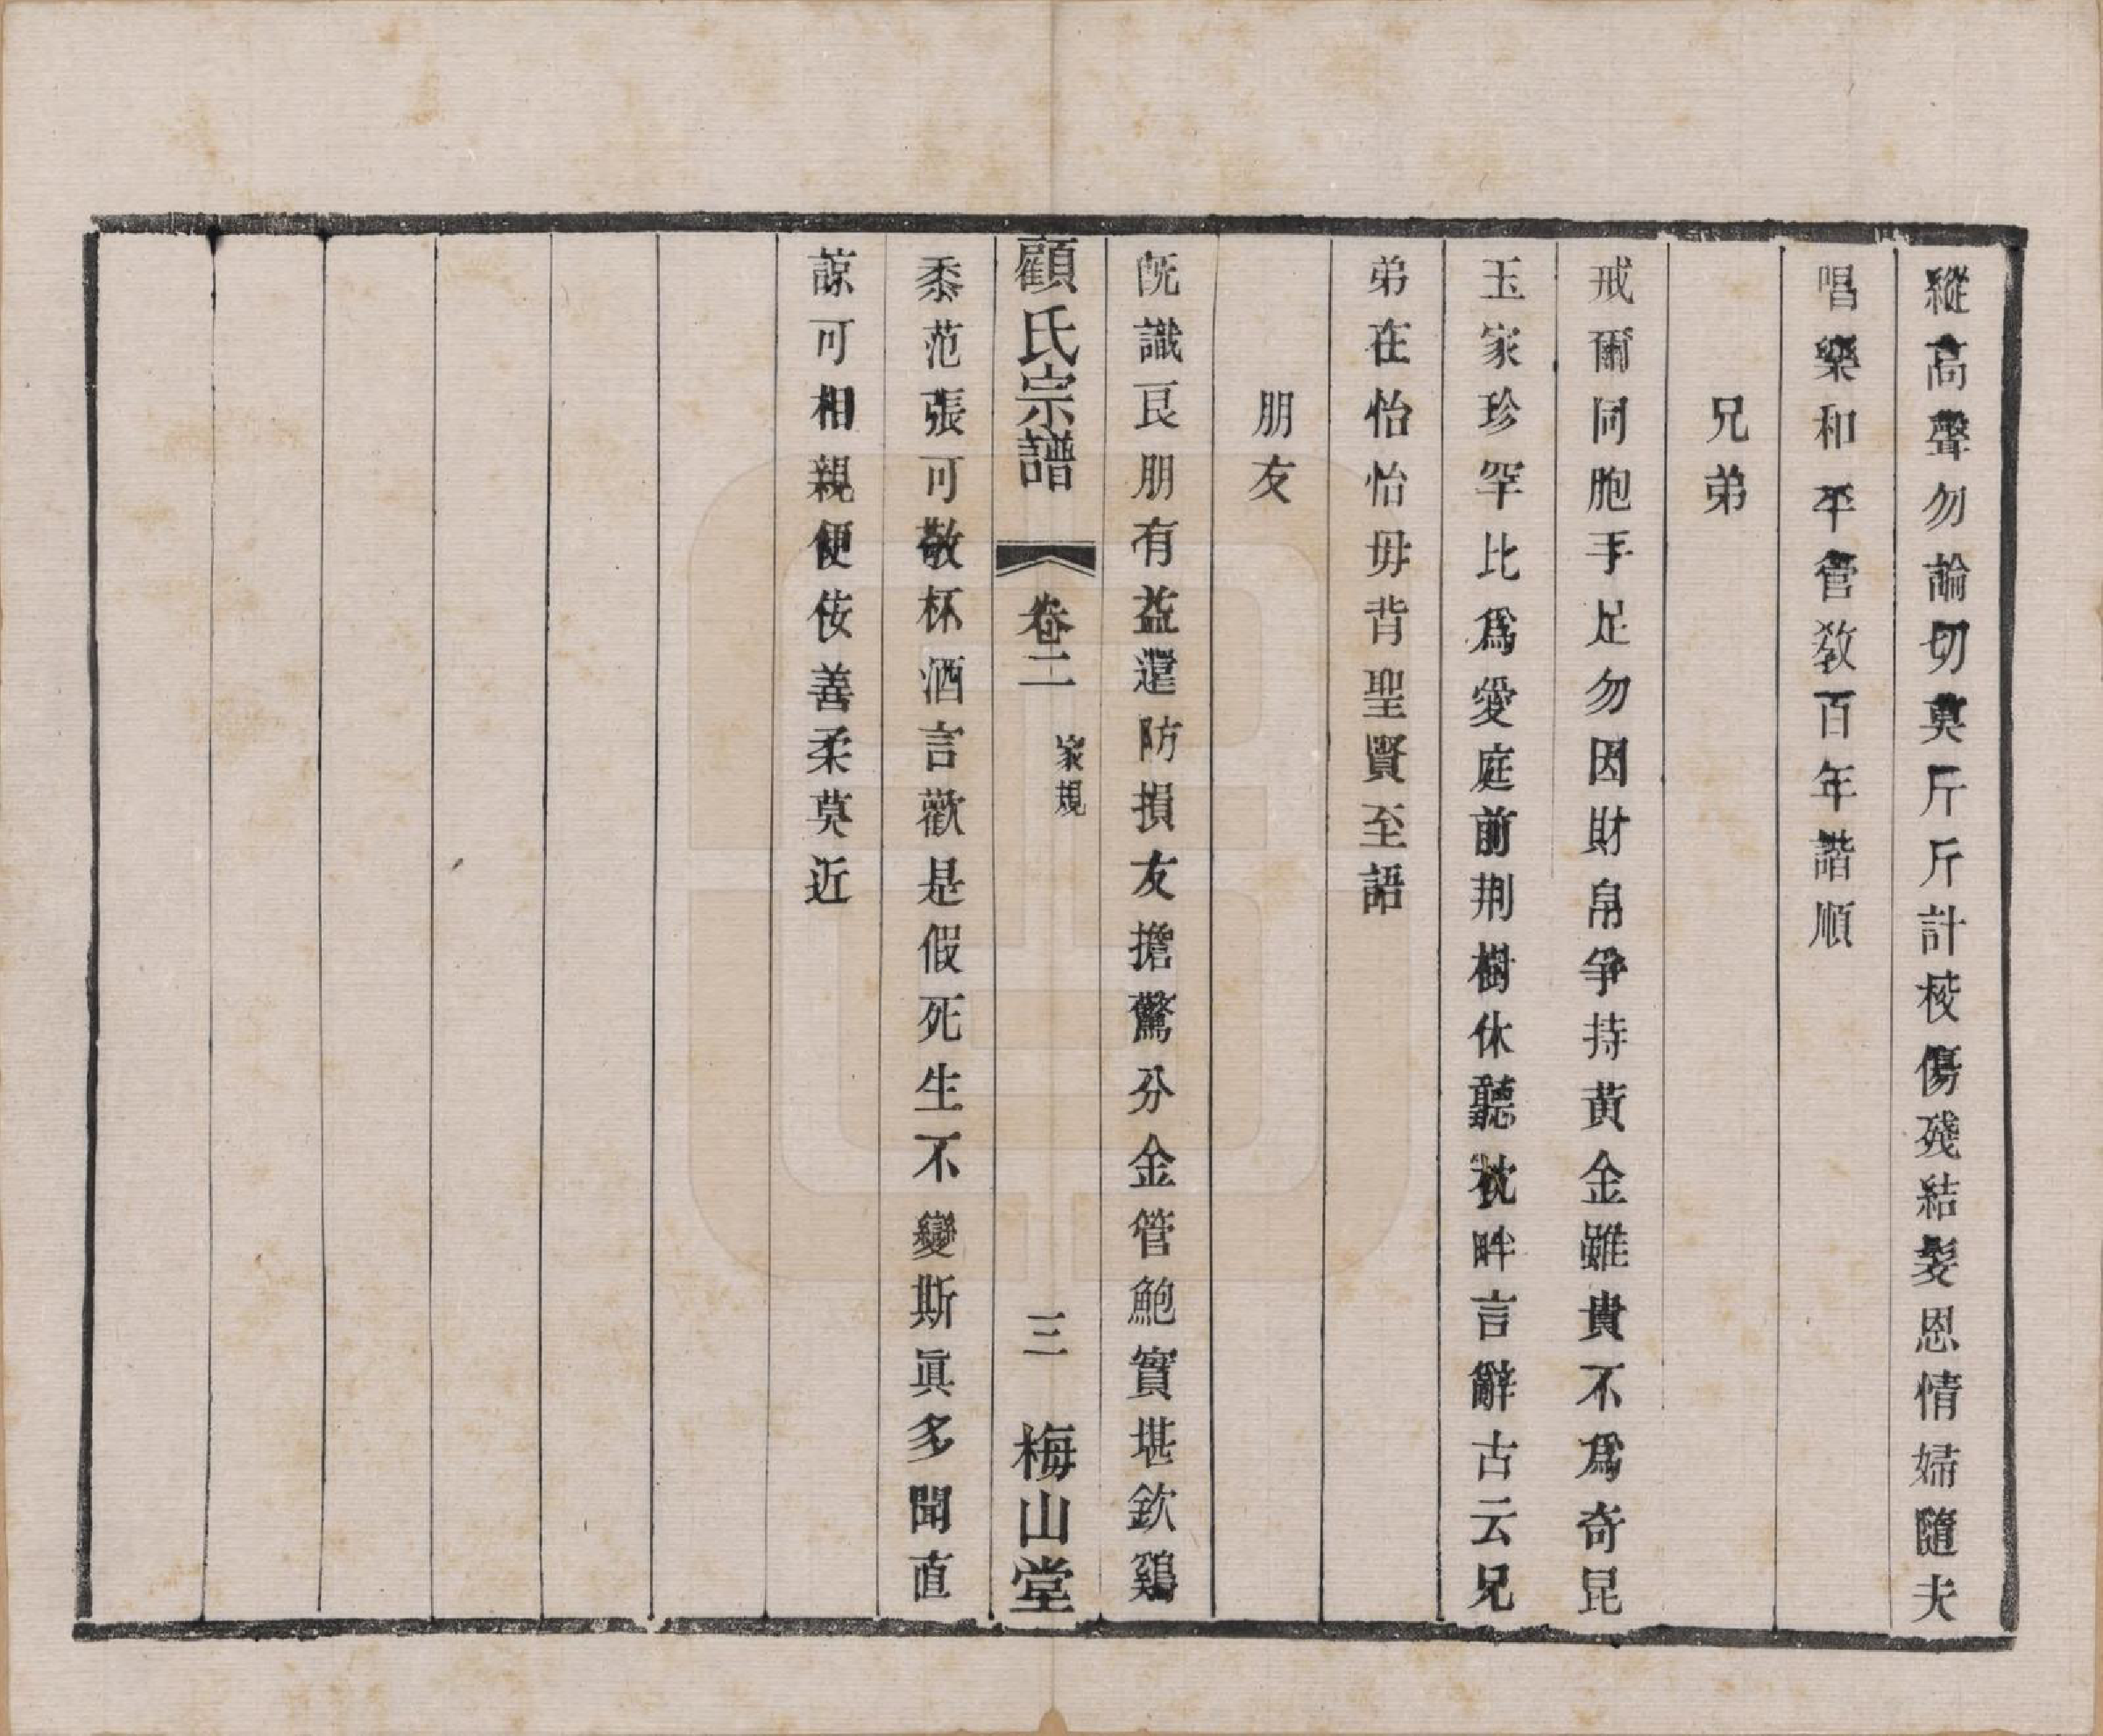 縱高聲勿論切莫斤斤計校傷殘結髮恩情婦隨夫
唱樂和平管教百年諧順
兄弟
戒爾同胞手足勿因財帛爭持黃金雖貴不爲奇昆
玉家珍罕比爲愛庭前荆樹休聽枕畔言辭古云兄
弟在怡怡毋背聖賢至語
朋友
既識良朋有益還防損友擔驚分金管鮑實堪欽鷄
顧氏宗譜 卷二 家規 三 梅山堂
黍范張可敬杯酒言歡是假死生不變斯眞多聞直
諒可相親便佞善柔莫近